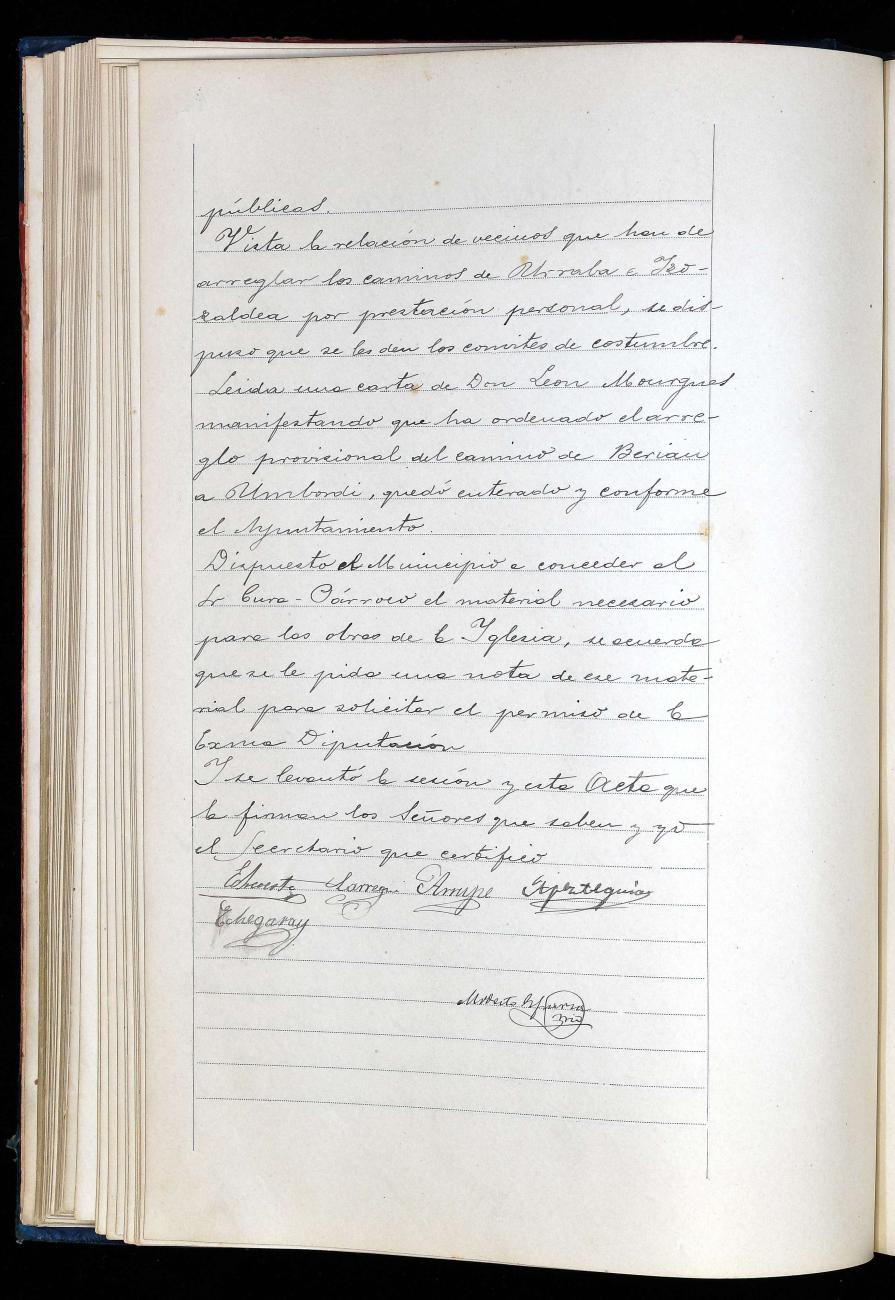 públicas.
Vista la relación de vecinos que han de
arreglar los caminos de Urraba e Izo-
zaldea por prestación personal, se dis-
puso que se les den los convites de costumbre.
Leida una carta de Don Leon Mourgues
manifestando que ha ordenado el arre-
glo provisional del camino de Berian
a Umbordi, quedó enterado y conforme
el Ayuntamiento.
Dispuesto el Municipio a conceder al
Sr Cura-Párroco el material necesario
para las obras de la Iglesia, se acuerda
que se le pida una nota de ese mate-
rial para solicitar el permiso de la
Exma Diputación
Y se levantó la sesión y esta Acta que
la firman los Señores que saben y yo
el Secretario que certifico
Larregui Arrupe Apezteguia
Echegaray
Modesto Esparza